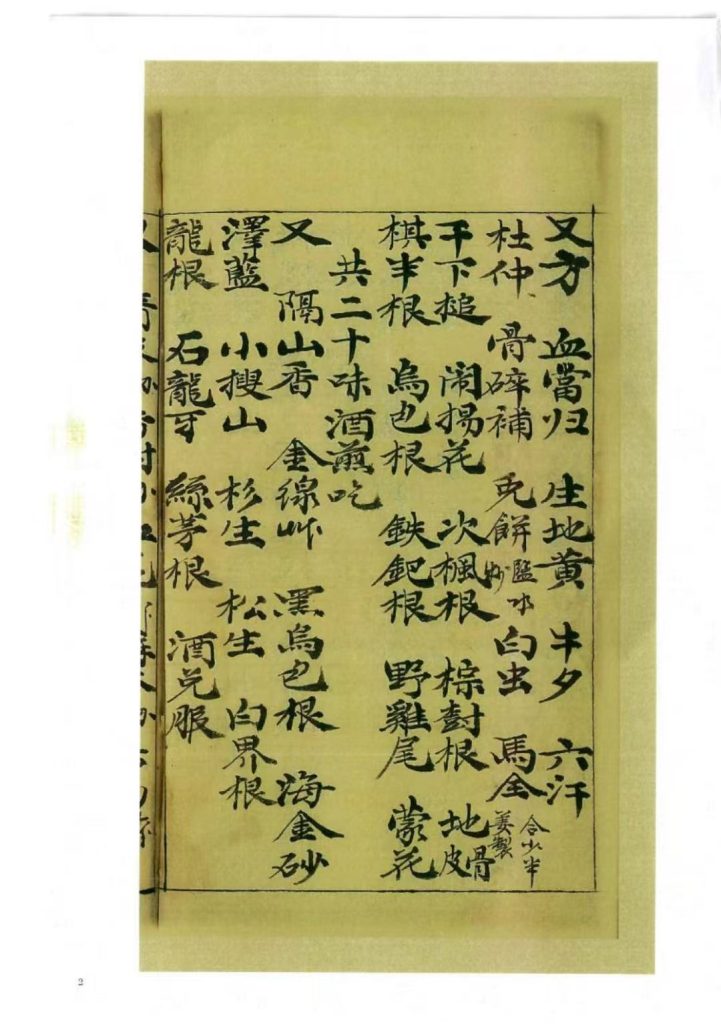 又方 血當归 生地黄 牛夕 六汗
杜仲 骨碎補 兎餅 盬水炒 白虫 馬全 合少半 姜製
千下搥 闹揚花 次楓根 棕對根 地骨皮
棋半根 烏也根 鉄鈀根 野雞尾 蒙花
共二十味酒煎吃
又 隔山香 金線艸 黑烏也根 海金砂
澤藍 小搜山 杉生 松生 白界根
龍根 石龍牙 絲茅根 酒兑服
2